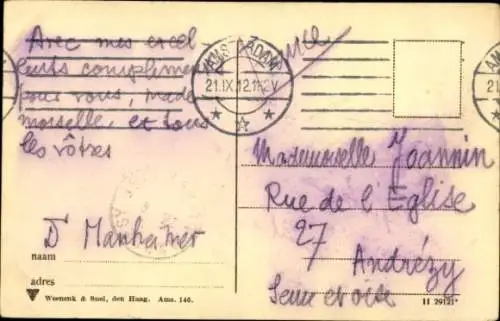 Avec mes excel
lents complimen
pour vous, made
moiselle, et tous
les vôtres
Dr Manheimer
naam
adres
Weenenk & Snel, den Haag. Ams. 146.
AMS ADAM
21.IX.12.
Mademoiselle Joannin
Rue de l'Eglise
27
Andrézy
Seine et oise
II 29121*
AM
21